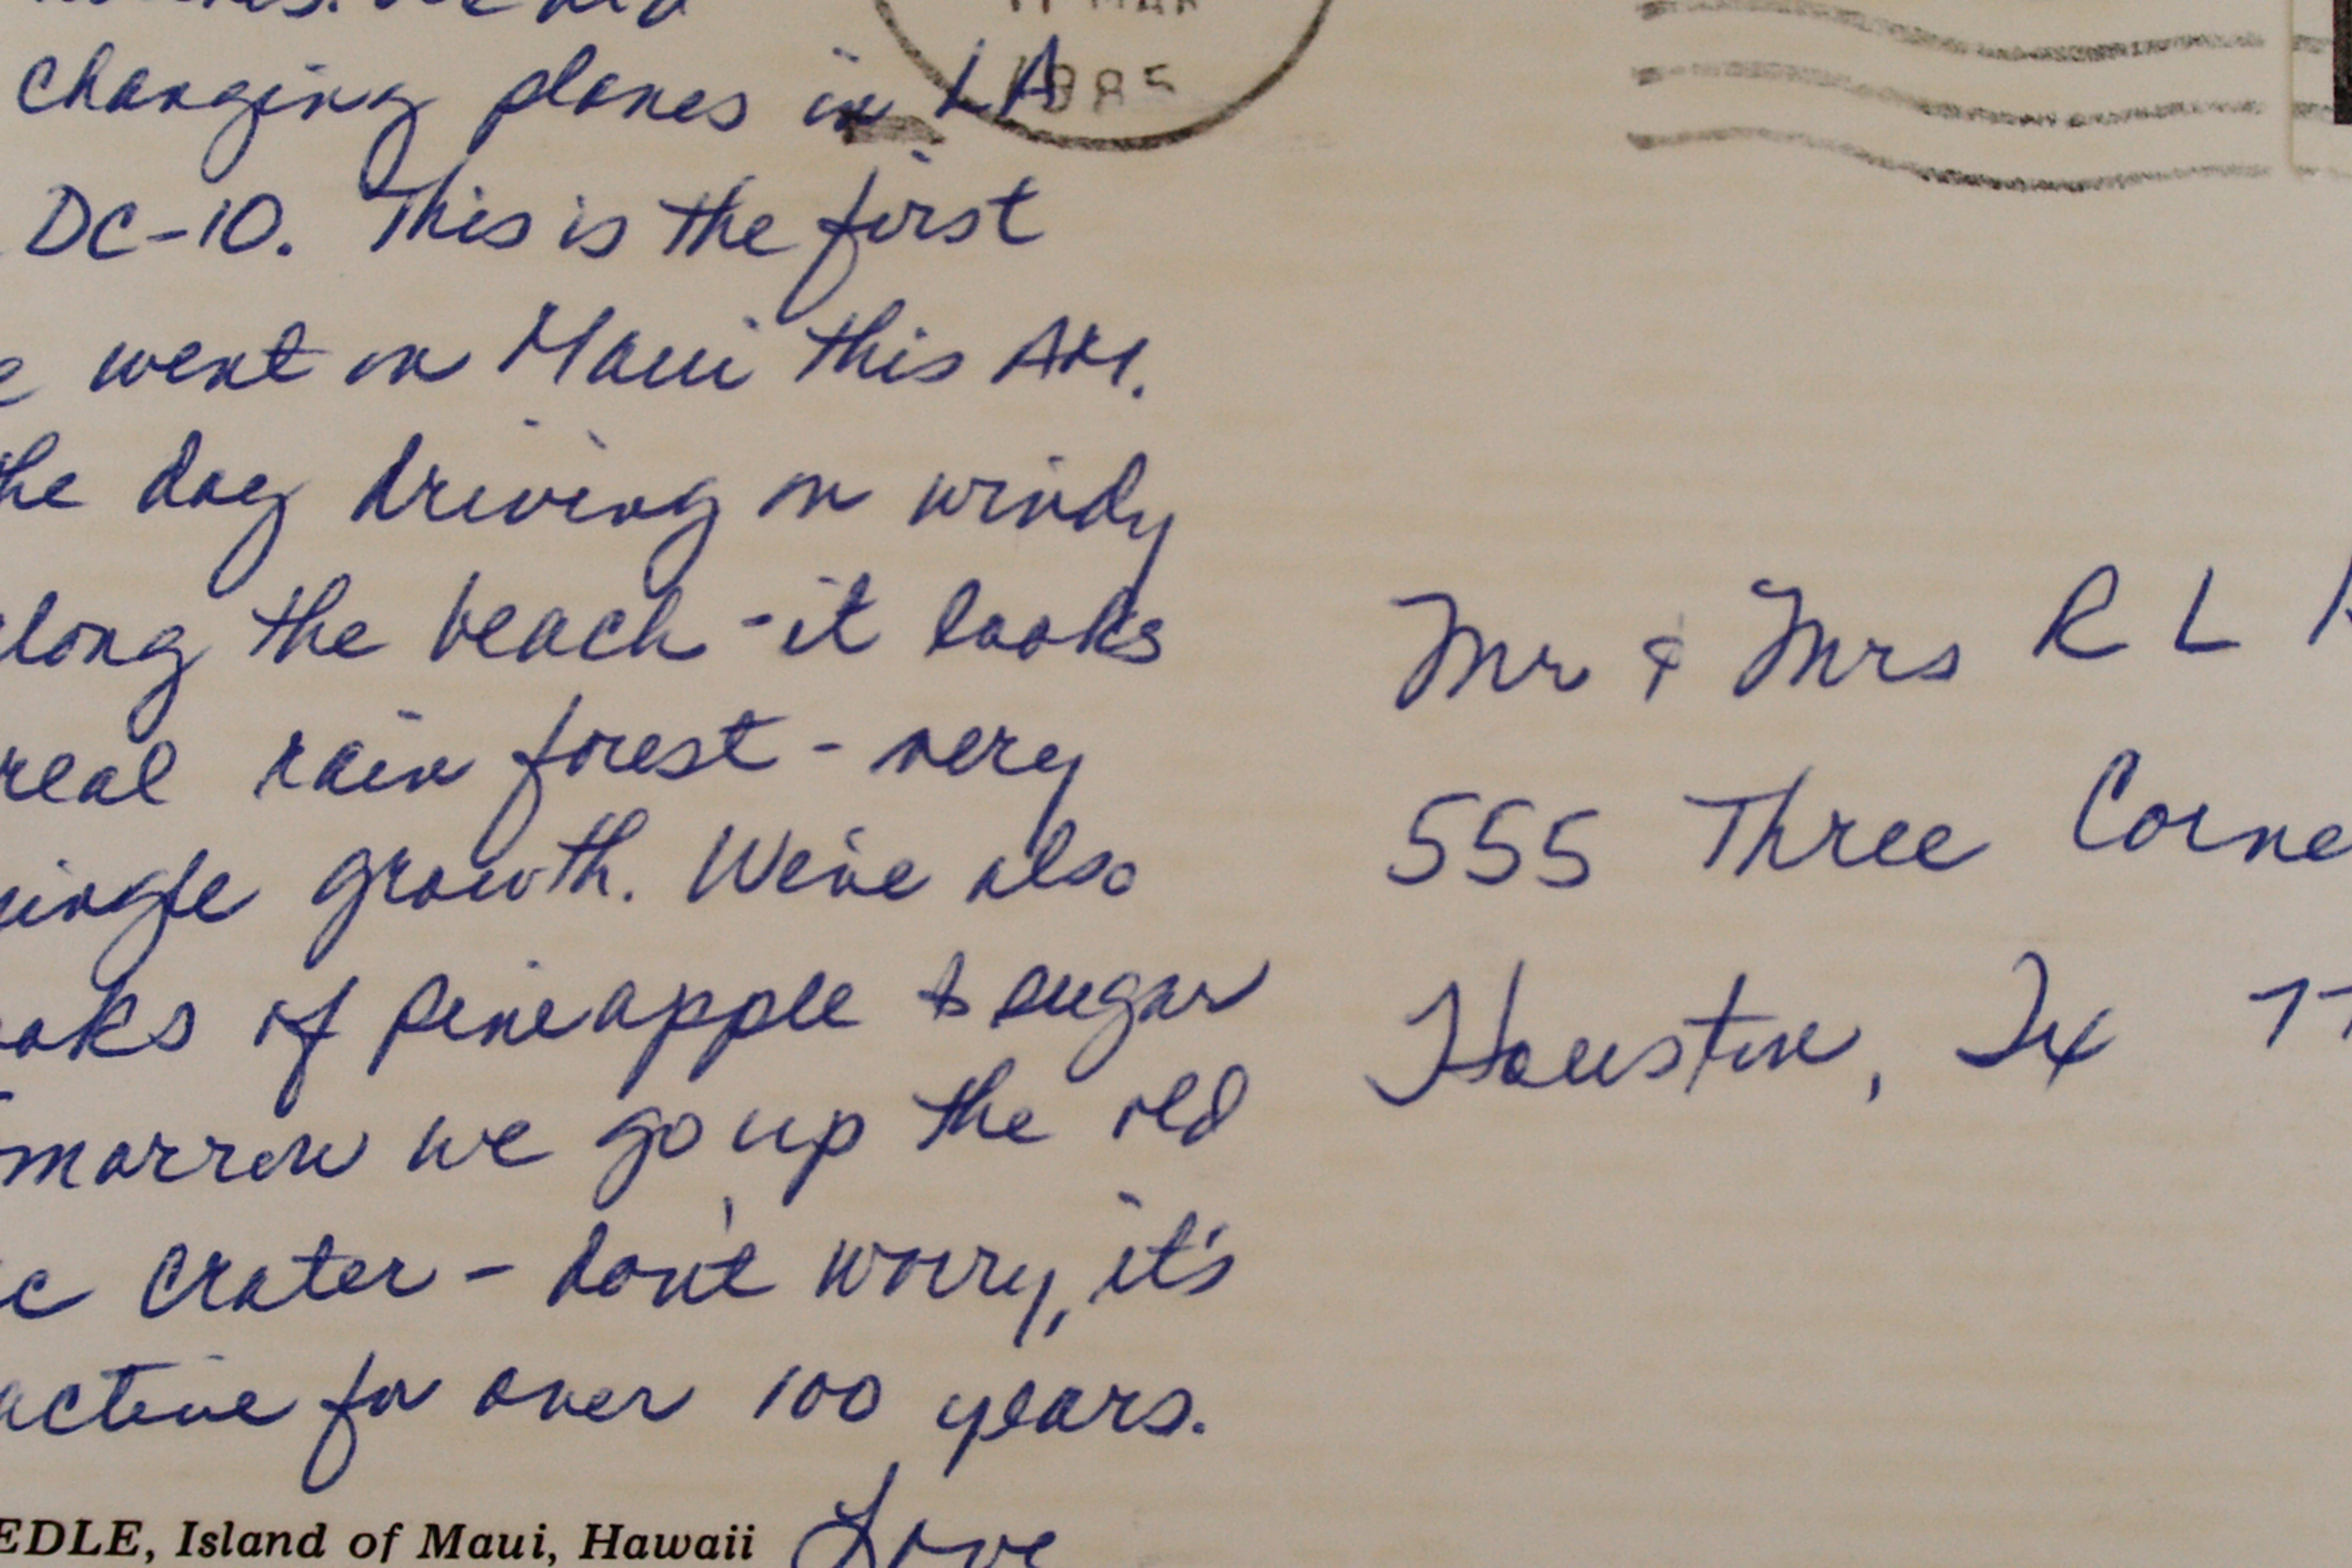 changing planes in LA
DC-10. This is the first
went on Maui this AM.
the day driving on windy
along the beach - it looks
real rain forest - very
jungle growth. We've also
of pineapple & sugar
morrow we go up the old
c crater - don't worry, it's
active for over 100 years.
Love
EDLE, Island of Maui, Hawaii
11 MAR
1985
Mr & Mrs R L
555 Three Corne
Houston, Tx 77